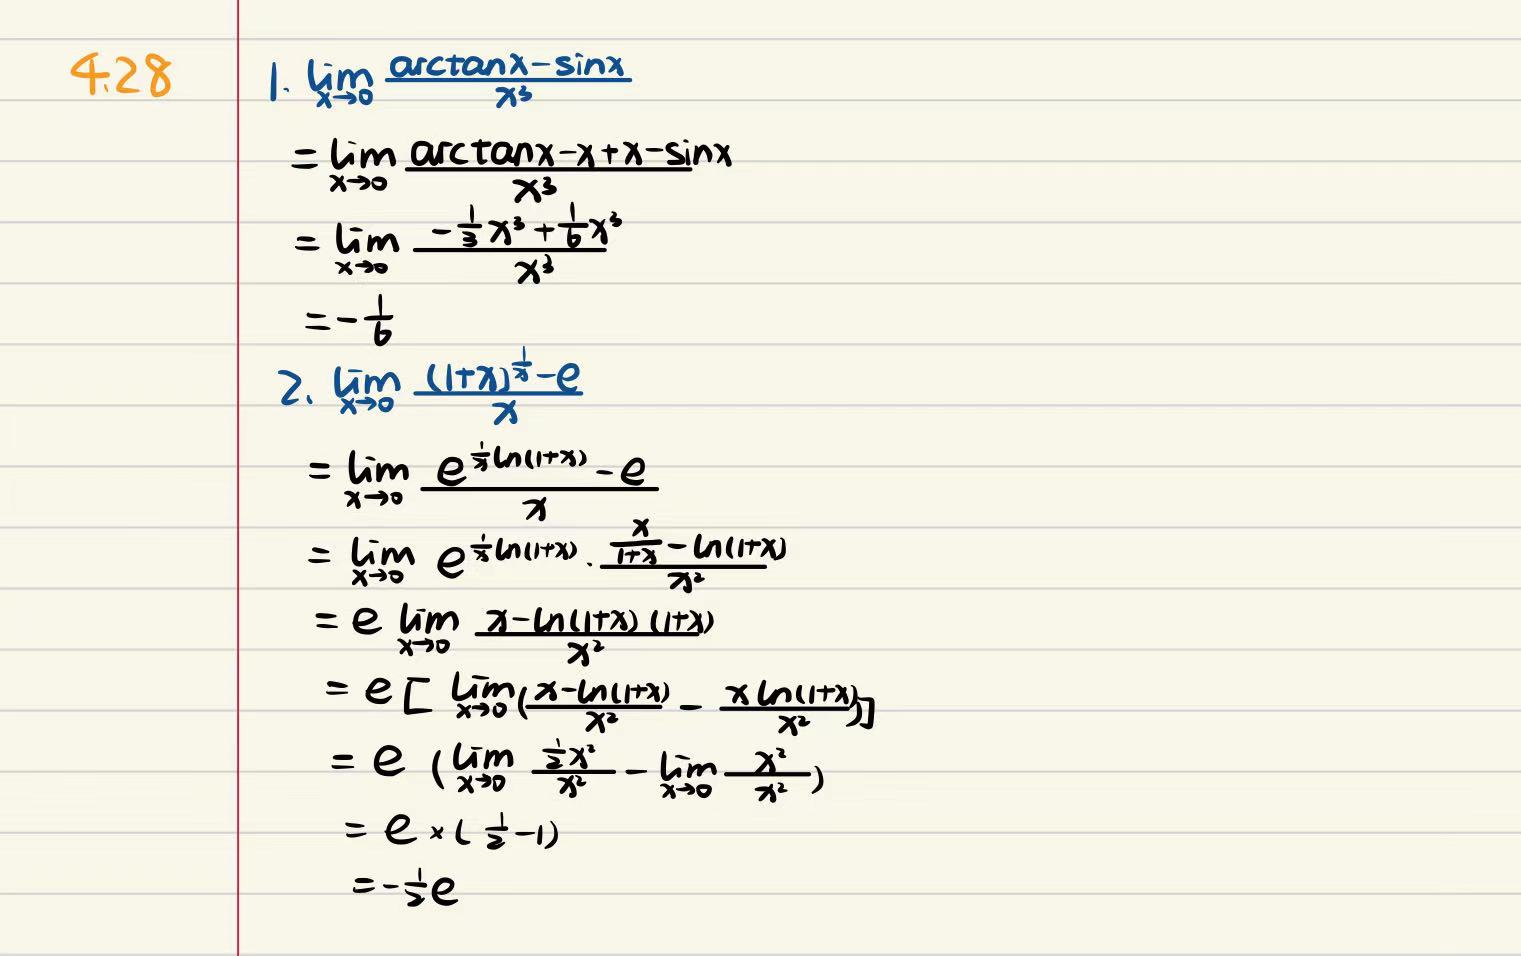 4.28
1. lim_{x→0} \frac{arctanx-sinx}{x³}
= lim_{x→0} \frac{arctanx-x+x-sinx}{x³}
= lim_{x→0} \frac{-\frac{1}{3}x³+\frac{1}{6}x³}{x³}
= -\frac{1}{6}
2. lim_{x→0} \frac{(1+x)^{\frac{1}{x}}-e}{x}
= lim_{x→0} \frac{e^{\frac{1}{x}ln(1+x)}-e}{x}
= lim_{x→0} e^{\frac{1}{x}ln(1+x)} · \frac{\frac{x}{1+x}-ln(1+x)}{x²}
= e lim_{x→0} \frac{x-ln(1+x)(1+x)}{x²}
= e [ lim_{x→0} (\frac{x-ln(1+x)}{x²} - \frac{xln(1+x)}{x²})]
= e (lim_{x→0} \frac{\frac{1}{2}x²}{x²} - lim_{x→0} \frac{x²}{x²})
= e × (\frac{1}{2}-1)
= -\frac{1}{2}e